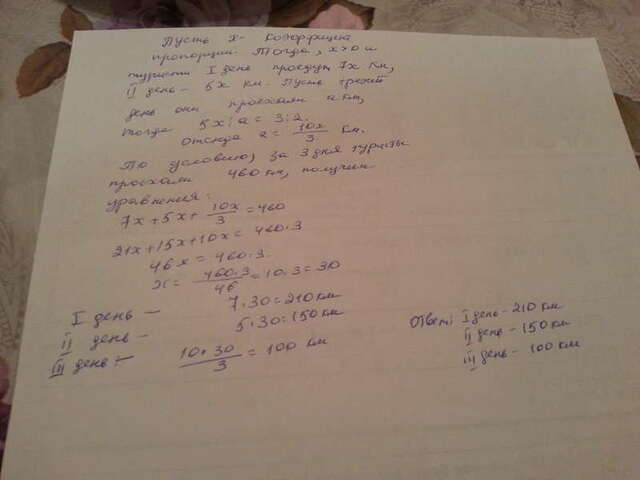 Пусть x - коэффициент
пропорции. Тогда, x>0 и
туристы I день проедут 7x км,
II день - 5x км. Пусть третий
день они проехали a км,
тогда 5x : a = 3 : 2.
Отсюда a = 10x/3 км.
По условию, за 3 дня туристы
проехали 460 км, получим
уравнения:
7x + 5x + 10x/3 = 460
21x + 15x + 10x = 460·3
46x = 460·3.
x = 460·3/46 = 10·3 = 30
I день - 7·30 = 210 км
II день - 5·30 = 150 км
III день - 10·30/3 = 100 км
Ответ: I день - 210 км
II день - 150 км
III день - 100 км